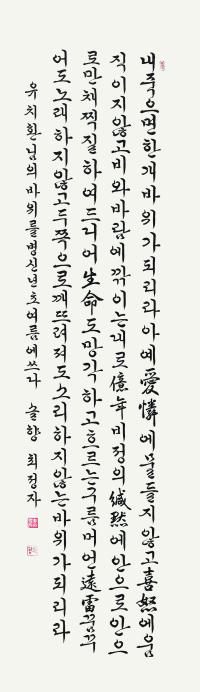 내 죽으면 한개 바위가 되리라 아예 愛憐에 물들지 않고 喜怒에 움
직이지 않고 비와 바람에 깎이는대로 億年 비정의 緘默에 안으로 안으
로만 채찍질하여 드디어 生命도 망각하고 흐르는 구름 머언 遠雷 꿈꾸
어도 노래하지 않고 두쪽으로 깨뜨려져도 소리하지 않는 바위가 되리라
유치환님의 바위를 병신년 초여름에 쓰다 솔향 최정자